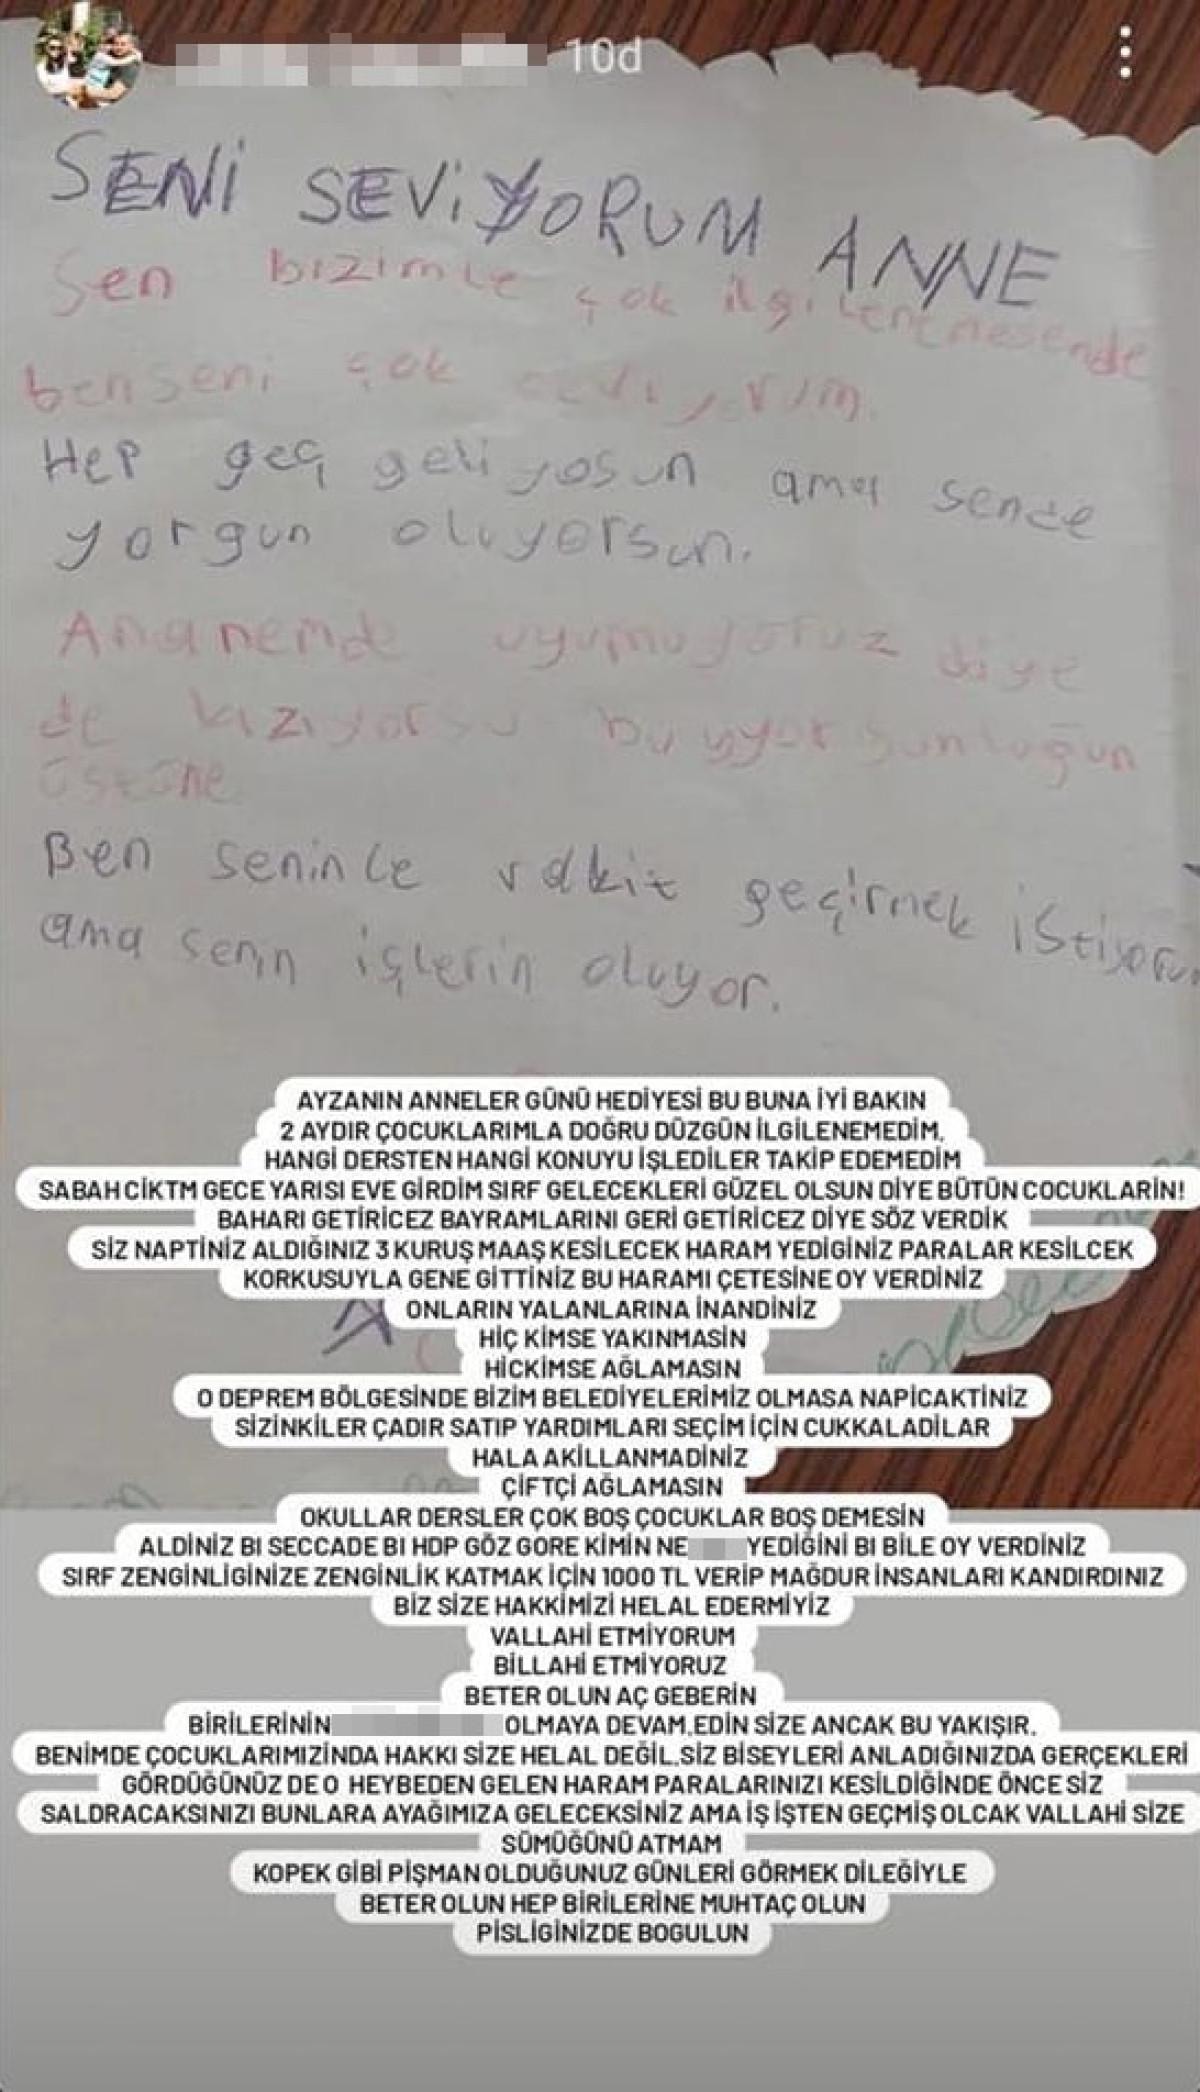 10d
SENİ SEVİYORUM ANNE
Sen bizimle çok ilgilenemesende
benseni çok seviyorum.
Hep geç geliyosun ama sende
yorgun oluyorsun.
Ananemde uyumuyoruz diye
de kızıyorsu bu yyorgunloğun
üstüne
Ben seninle vakit geçirmek istiyorum
ama senin işlerin oluyor.
AYZANIN ANNELER GÜNÜ HEDİYESİ BU BUNA İYİ BAKIN
2 AYDIR ÇOCUKLARIMLA DOĞRU DÜZGÜN İLGİLENEMEDİM,
HANGİ DERSTEN HANGİ KONUYU İŞLEDİLER TAKİP EDEMEDİM
SABAH CİKTM GECE YARISI EVE GİRDİM SIRF GELECEKLERİ GÜZEL OLSUN DİYE BÜTÜN COCUKLARİN!
BAHARI GETİRİCEZ BAYRAMLARINI GERİ GETİRİCEZ DİYE SÖZ VERDİK
SİZ NAPTİNİZ ALDIĞINIZ 3 KURUŞ MAAŞ KESİLECEK HARAM YEDIGİNİZ PARALAR KESİLCEK
KORKUSUYLA GENE GİTTİNİZ BU HARAMI ÇETESİNE OY VERDİNİZ
ONLARIN YALANLARINA İNANDİNİZ
HİÇ KİMSE YAKINMASİN
HİCKİMSE AĞLAMASIN
O DEPREM BÖLGESİNDE BİZİM BELEDİYELERİMİZ OLMASA NAPİCAKTİNİZ
SİZİNKİLER ÇADIR SATIP YARDIMLARI SEÇİM İÇİN CUKKALADİLAR
HALA AKİLLANMADİNİZ
ÇİFTÇİ AĞLAMASIN
OKULLAR DERSLER ÇOK BOŞ ÇOCUKLAR BOŞ DEMESİN
ALDİNİZ BI SECCADE BI HDP GÖZ GORE KİMİN NE YEDİĞİNİ BI BİLE OY VERDİNİZ
SIRF ZENGİNLİGİNİZE ZENGİNLİK KATMAK İÇİN 1000 TL VERİP MAĞDUR İNSANLARI KANDIRDINIZ
BİZ SİZE HAKKİMİZİ HELAL EDERMİYİZ
VALLAHİ ETMİYORUM
BİLLAHİ ETMİYORUZ
BETER OLUN AÇ GEBERİN
BİRİLERİNİN OLMAYA DEVAM,EDİN SİZE ANCAK BU YAKIŞIR.
BENİMDE ÇOCUKLARIMIZİNDA HAKKI SİZE HELAL DEĞİL.SİZ BİSEYLERİ ANLADIĞINIZDA GERÇEKLERİ
GÖRDÜĞÜNÜZ DE O HEYBEDEN GELEN HARAM PARALARINIZI KESİLDİĞİNDE ÖNCE SİZ
SALDRACAKSINIZI BUNLARA AYAĞIMIZA GELECEKSİNİZ AMA İŞ İŞTEN GEÇMİŞ OLCAK VALLAHİ SİZE
SÜMÜĞÜNÜ ATMAM
KOPEK GİBİ PİŞMAN OLDUĞUNUZ GÜNLERİ GÖRMEK DİLEĞİYLE
BETER OLUN HEP BİRİLERİNE MUHTAÇ OLUN
PİSLİGİNİZDE BOGULUN